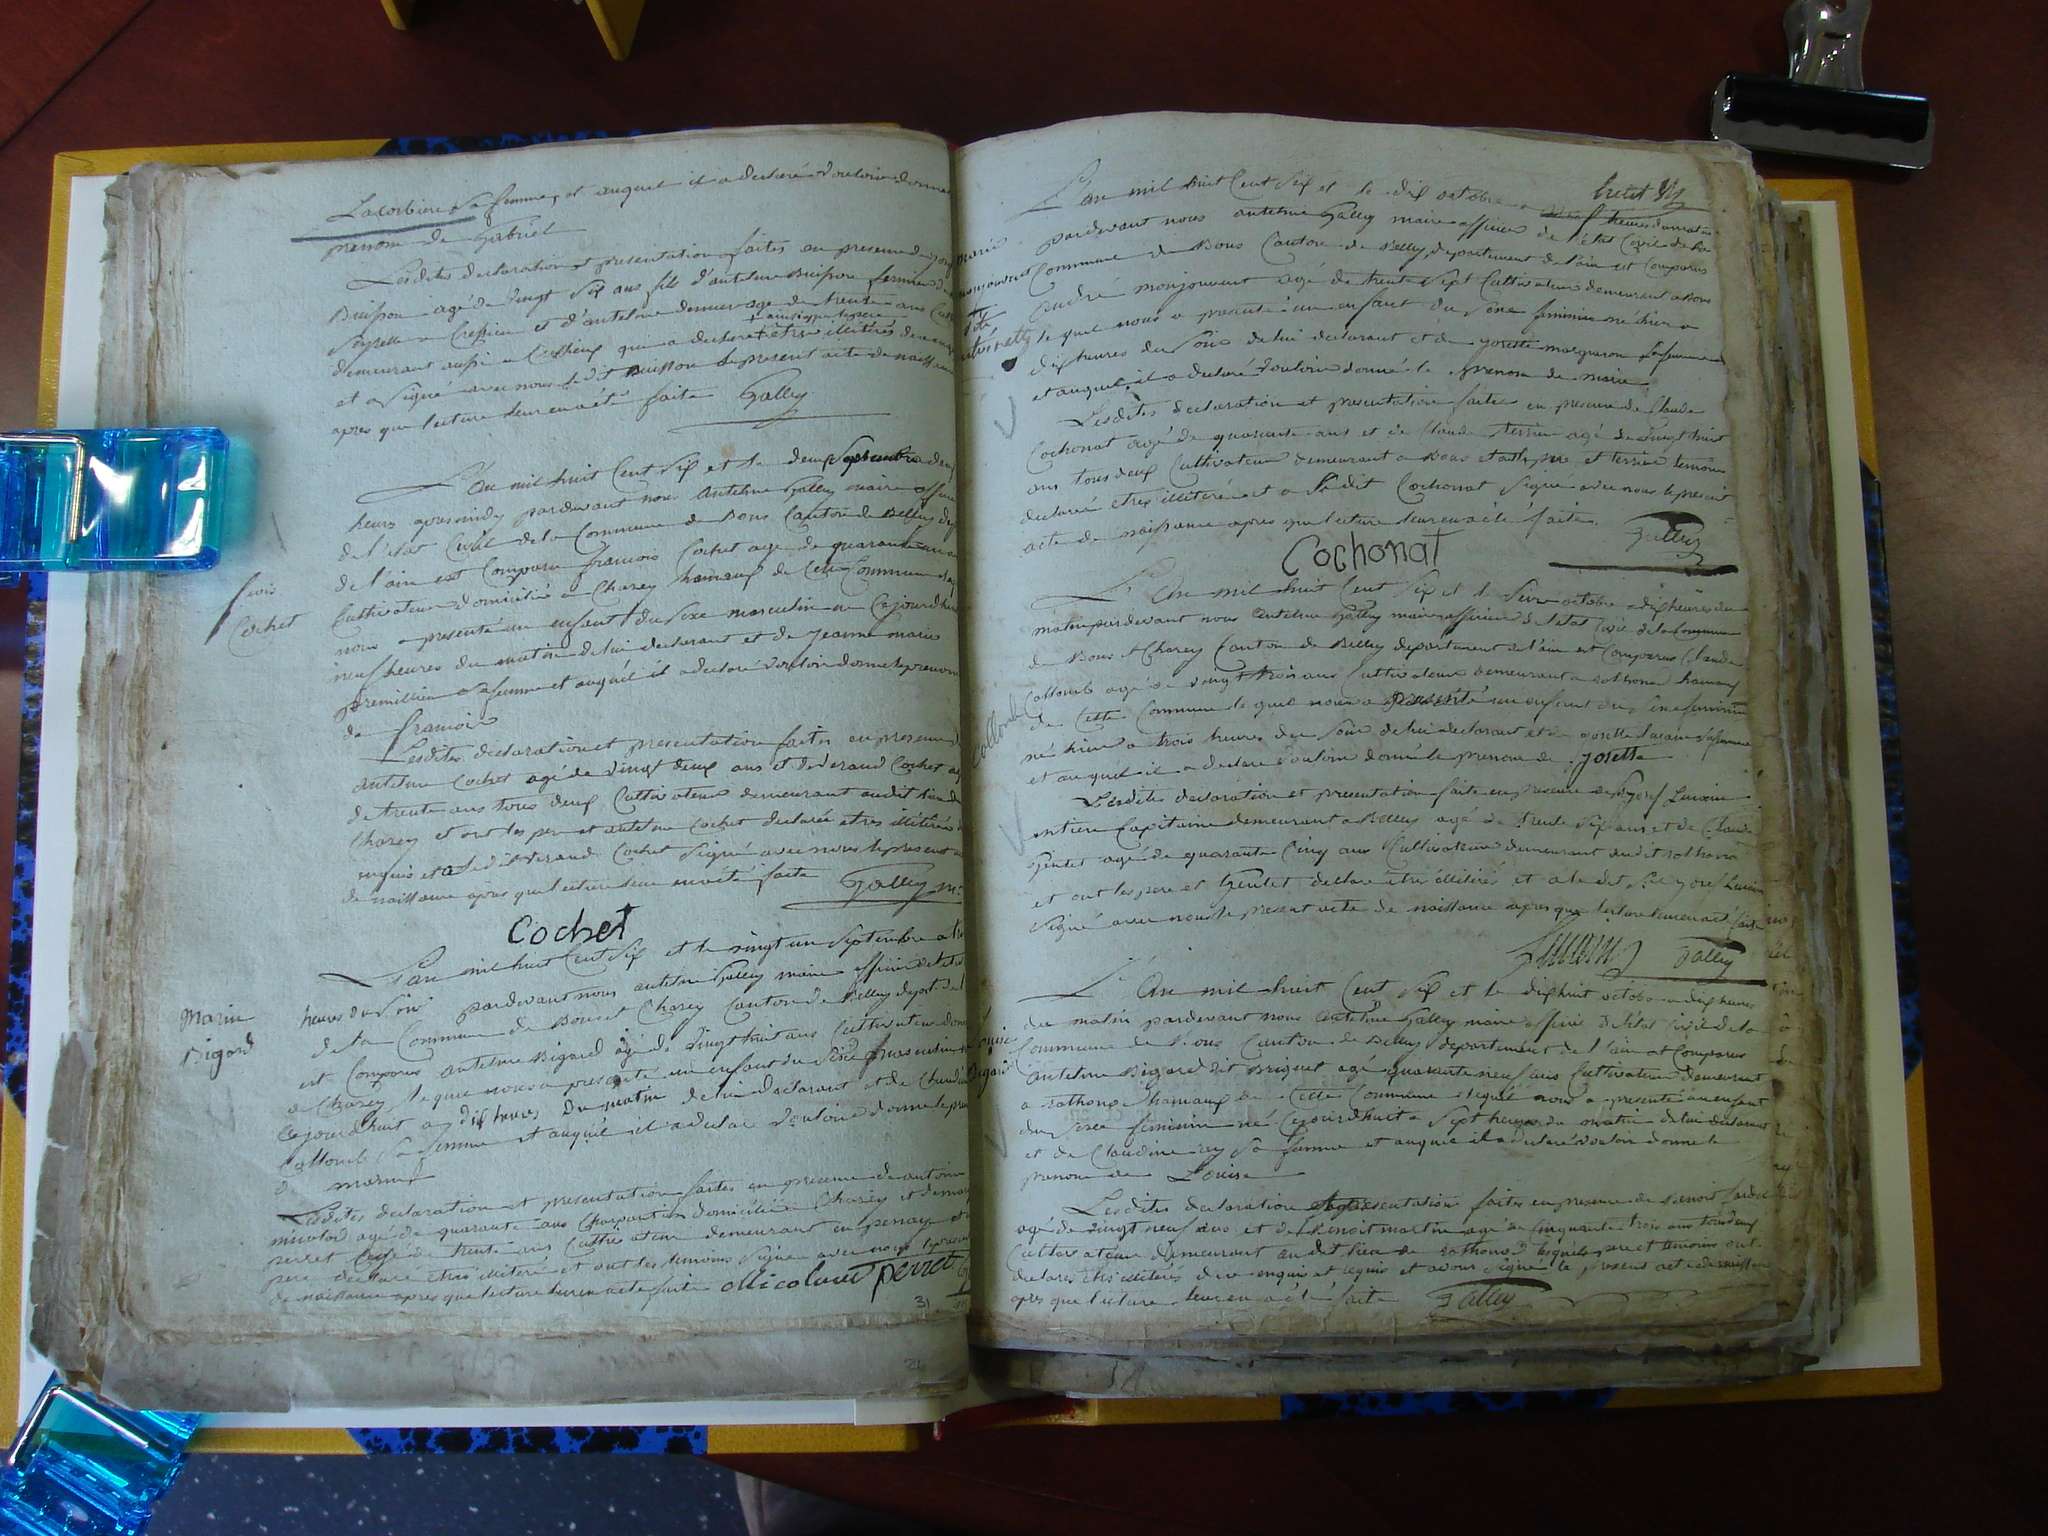 Lacorbiere Sa femme et auquel il a declaré vouloir donner
prenom de Gabriel
Lesdites declaration et presentation faites en presence de
Buisson agé de vingt six ans fils d'antelme Buisson fermier
a Cressieu et d'antelme demeur age de trente ans
+ ainsi que le pere
demeurant aussi a qui a declaré + etre illitérés de ce
et a Signé avec nous le dit Buisson le present acte de naissance
apres que lecture leur en a été faite Galley
L'an mil huit Cent Six et le deux Septembre a deux
heures apres midy pardevant nous Antelme Galley maire officier
de l'etat Civil de la Commune de Bons Canton de Belley dept
de l'ain est Comparu francois Cochet age de quarante ans
Cultivateur domicilié a Charey hamaux de Cette Commune lequel
nous a presenté un enfant du Sexe masculin né Cejourdhui
neuf heures du matin de lui declarant et de Jeanne marie
premillieu Sa femme et auquel il a declaré vouloir donne le prenom
de francois
Lesdites declaration et presentation faites en presence
antelme Cochet agé de vingt deux ans et de Verand Cochet agé
de trente ans tous deux Cultivateur demeurant audit lieu de
Charey et ont les pere et antelme Cochet declarée etres illitérés
requis et a le dit Verand Cochet Signé avec nous le present acte
de naissance apres que lecture leur en a été faite Galley m.
fcois
Cochet
Cochet
L'an mil huit Cent Six et le vingt un Septembre a
heures du Soir pardevant nous antelme Galley maire officier de l'etat
de la Commune de Bons et Charey Canton de Belley dept de l
est Comparus antelme Bigard agé de vingt huit ans Cultivateur
a Charey lequel nous a presenté un enfant du Sexe masculin
Cejourdhuit a dix heures du matin de lui declarant et de Claudine
Collomb Sa femme et auquel il a declaré vouloir donne le prenom
de marin
Marin
Bigard
Lesdites declaration et presentation faites en presence de antoine
nicolod agé de quarante ans Charpentier domicilié a Charey et
perret agé de trente ans Cultivateur demeurant en penaye et
pere declaré etres illiteré et ont les temoins Signés avec nous le present
de naissance apres que lecture leur en a ete faite Nicolaud perret
31
L'an mil huit Cent Six et le dix octobre a neuf heures du matin
pardevant nous antelme Galley maire officier de l'etat Civil de la
Commune de Bons Canton de Belley departement de l'ain est Comparus
André monjouvent agé de trente Sept Cultivateur demeurant a Bons
lequel nous a presenté un enfant du Sexe feminin né hier a
dix heures du Soir de lui declarant et de Josette Margueron Sa femme
et auquel il a declaré vouloir donné le prenom de marie
marie
monjouvent
Lesdites declaration et presentation faites en presence de Claude
Cochonat agé de quarante ans et de Claude terrier agé de vingt huit
ans tous deux Cultivateur demeurant a Bons et ont le pere et terrier temoins
declarée etres illiteré et a le dit Cochonat Signé avec nous le present
acte de naissance apres que lecture leur en a été faite. Galley
Cochonat
L'An mil huit Cent Six et le Seize octobre a dix heures du
matin pardevant nous Antelme Galley maire officier de l'etat Civil de la Commune
de Bons et Charey Canton de Belley departement de l'ain est Comparus Claude
Collomb agé de vingt trois ans Cultivateur demeurant a Rothonod hamaux
de Cette Commune le quel nous a presenté un enfant du Sexe feminin
né hier a trois heures du Soir de lui declarant et de Josette Lucain Sa femme
et auquel il a declaré vouloir donné le prenom de Josette
Collomb
Lesdites declaration et presentation faite en presence de Josef Lucain
entien Capitaine demeurant a Belley agé de trente Six ans et de Claude
Gentet agé de quarante Cinq ans Cultivateur demeurant audit Rothonod
et ont les pere et Gentet declaré etre illitérés et a le dit Sr Josef Lucain
Signé avec nous le present acte de naissance apres que lecture leur en a été faite
Lucain Galley
L'An mil huit Cent Six et le dix huit octobre a dix heures
du matin pardevant nous Antelme Galley maire officié de l'etat Civil de la
Commune de Bons Canton de Belley departement de l'ain est Comparus
Antelme Bigard dit Briquet agé quarante neuf ans Cultivateur demeurant
a Rothonod hamaux de Cette Commune lequel nous a presenté un enfant
du Sexe feminin né Cejourdhuit a Sept heures du matin de lui declarant
et de Claudine rey Sa femme et auquel il a declaré vouloir donne le
prenom de Louise
Louise
Bigard
Lesdites declaration et presentation faites en presence de Benoit
agé de vingt neuf ans et de Benoit martin agé de Cinquante trois ans tous deux
Cultivateur demeurant audit lieu de Rothonod lesquels pere et temoins ont
declarés etres illitérés de ce enquis et requis et avons Signé le present acte de naissance
apres que lecture leur en a été faite Galley